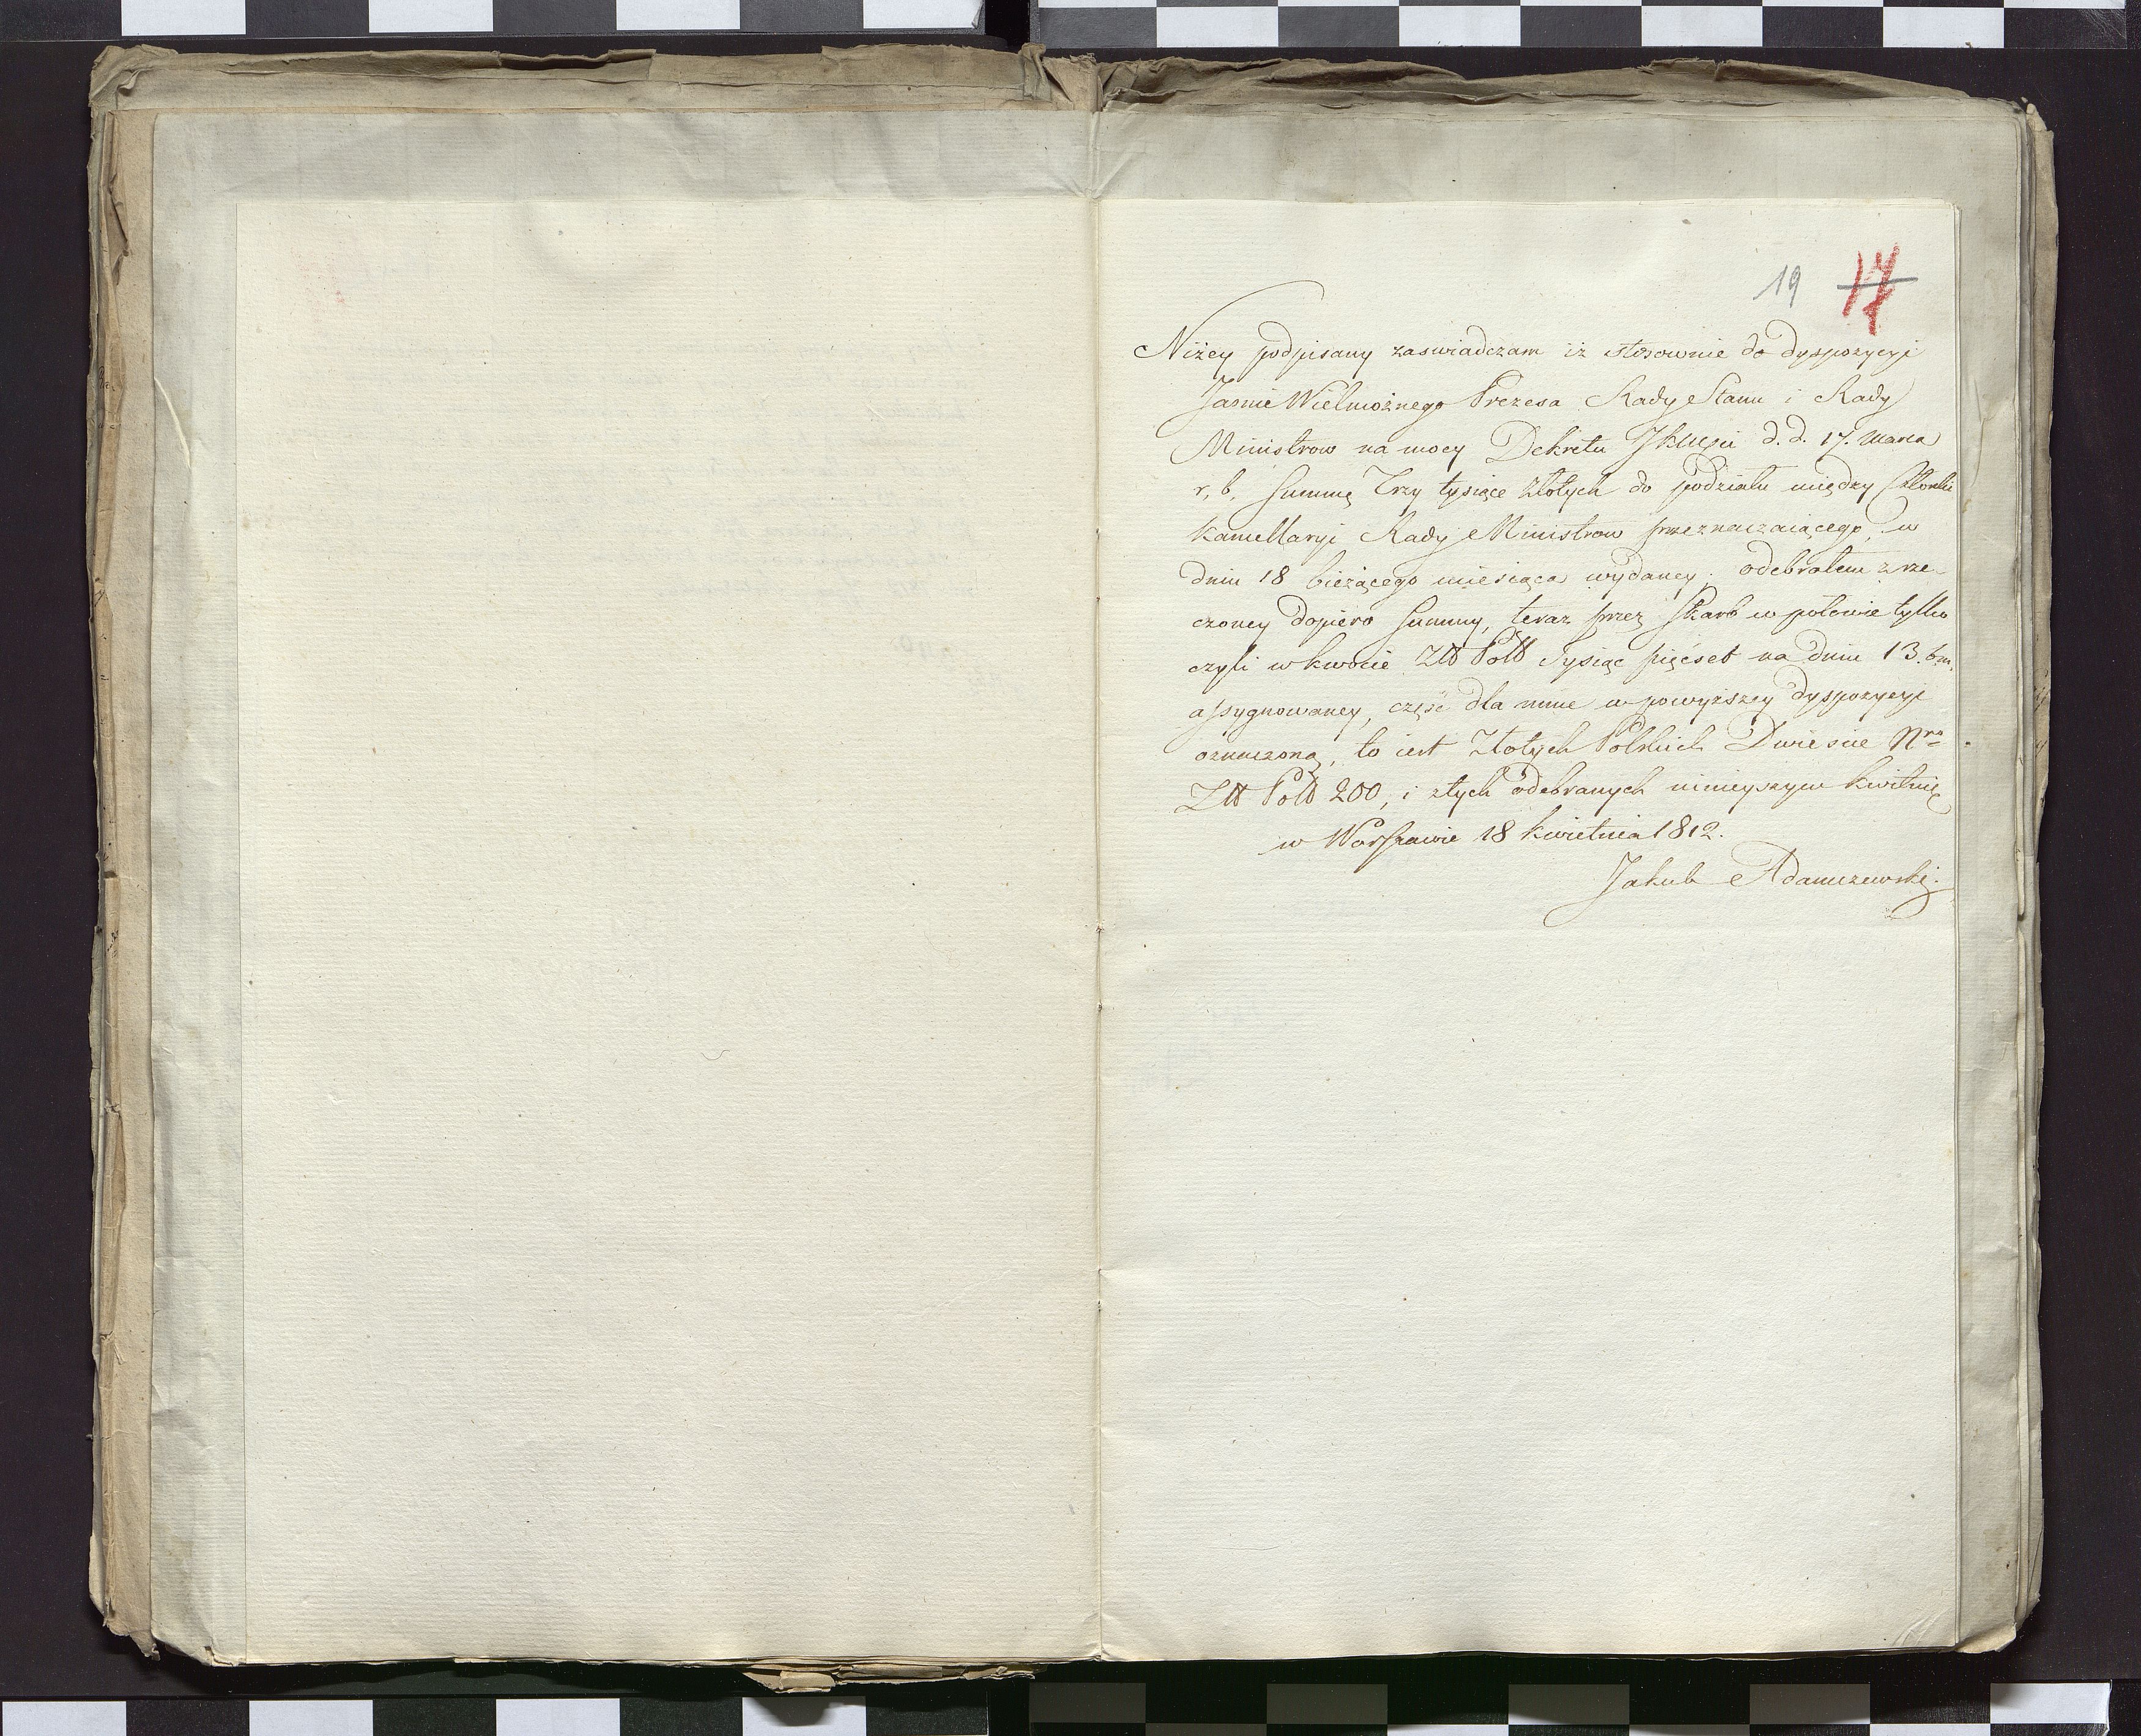 19 17
Niżey podpisany zaswiadczam iż stosownie do dyspozycyi
Jasnie Wielmożnego Prezesa Rady Stanu i Rady
Ministrow na mocy Dekretu JKMci d. d. 17. Marca
r. b. Summę Trzy tysiące Złotych do podziału między Członki
Kancellaryi Rady Ministrow przeznaczaiącego, w
dniu 18 bieżącego miesiąca wydaney; odebrałem z rze-
czoney dopiero Summy, teraz przez Skarb w połowie tylko
czyli w kwocie Złt Polt Tysiąc pięcset na dniu 13. b. m.
assygnowaney, część dla mnie w powyższey dyspozycyi
oznaczoną, to iest Złotych Polskich Dwiescie Nro
Złt Polt 200, i z tych odebranych ninieyszym kwituię
w Warszawie 18 kwietnia 1812.
Jakub Adamczewski.